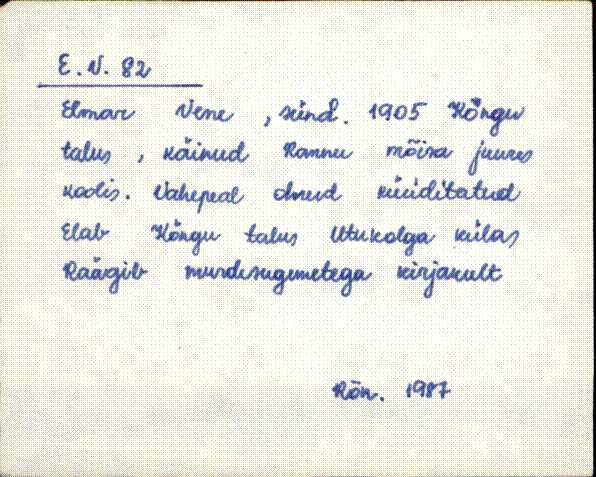 E. V. 82
Elmar Vene , sünd. 1905 Kõngu
talus , käinud Rannu mõisa juures
koolis. Vahepeal olnud küüditatud
Elab Kõngu talus Utukolga külas
Räägib murdesugemetega kirjakult
Rõn. 1987